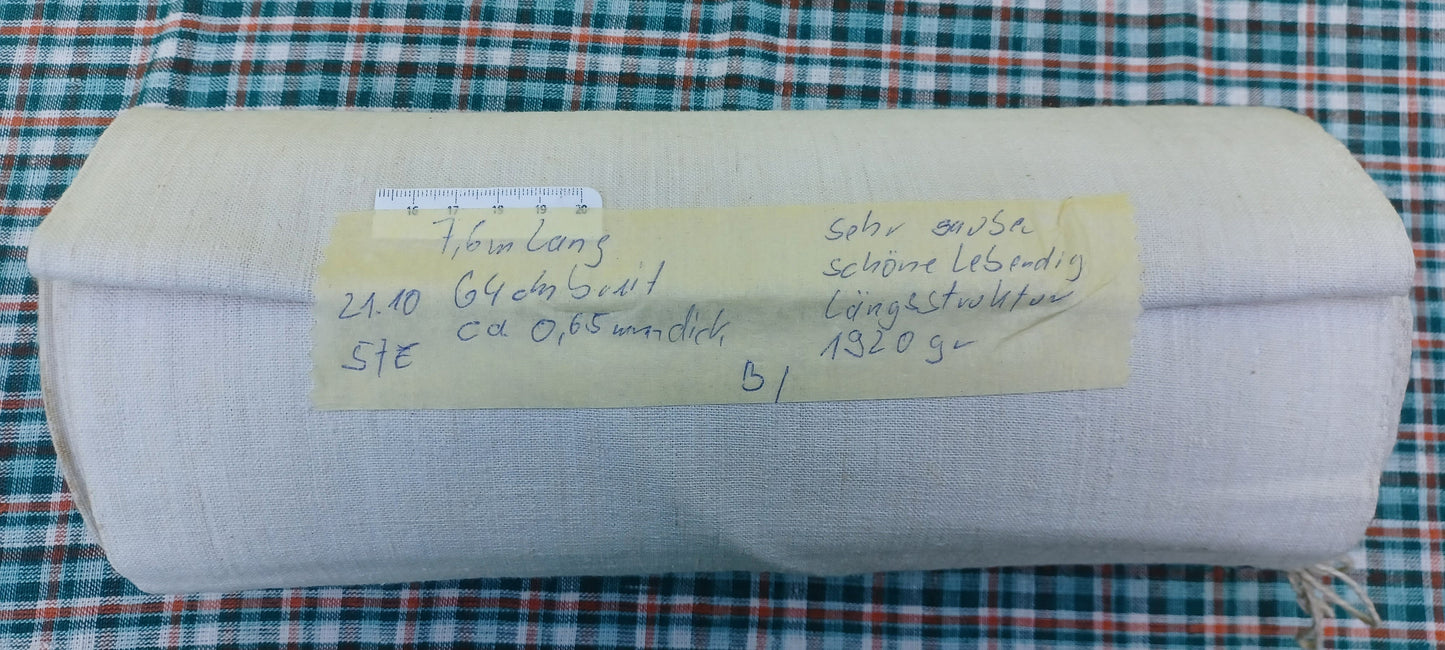 16 17 18 19 20
7,6m Lang
64 cm breit
ca 0,65 mm dick
21.10
57E
sehr sauber
schöne Lebendig
Längsstruktur
1920 gr
B/